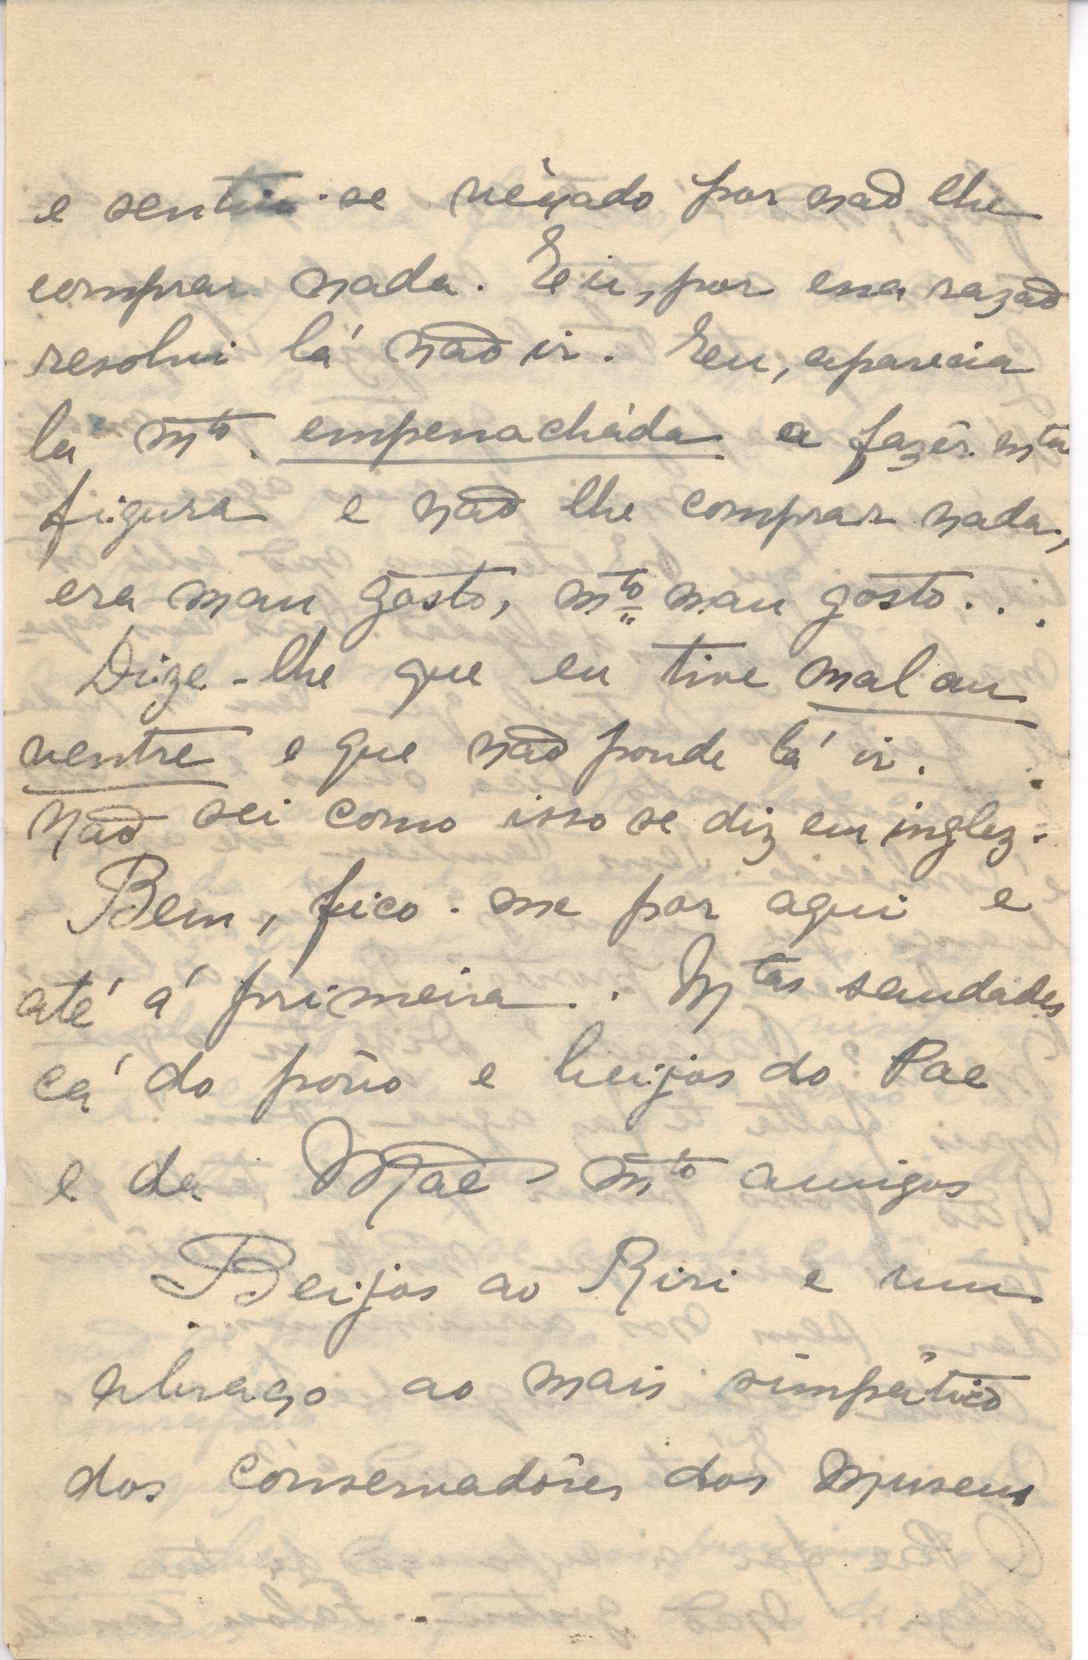 e sentiu-se véxado por não lhe
comprar nada. Eu, por essa razão
resolvi lá não ir. Eu, aparecia
lá m.to empenacháda a fazêr m.ta
figura e não lhe comprar nada,
era mau gôsto, m.to mau gôsto...
Dize-lhe que eu tive mal au
ventre e que não poude lá ir.
Não sei como isso se diz em inglez.
Bem, fico-me por aqui e
até á primeira.. M.tas saudades
cá do pôvo e beijos do Pae
e da Mãe m.to amigos
Beijos ao Riri e um
abraço ao mais simpático
dos conservadôres dos Museus